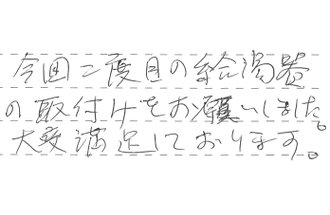 今回二度目の給湯器
の取付けをお願いしました。
大変満足しております。